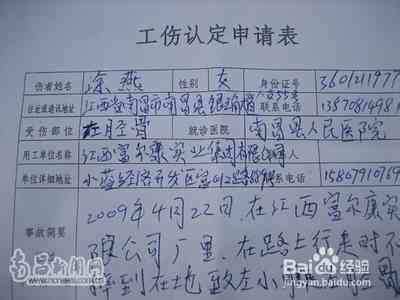 工伤认定申请表
伤者姓名 涂燕 性别 女 身份证号 3601211977
住址或通讯地址 江西省南昌市南昌县 联系电话 1387081498
受伤部位 左胫骨 就诊医院 南昌县人民医院
用工单位名称 江西富尔康实业集团有限公司
单位详细地址 小蓝经济开发区富山 联系电话 15867910769
事故简要
2009年4月22日,在江西富尔康实
限公司厂里,在路上行走时不
摔到在地,致左小
南昌新闻网
Baidu百度经验